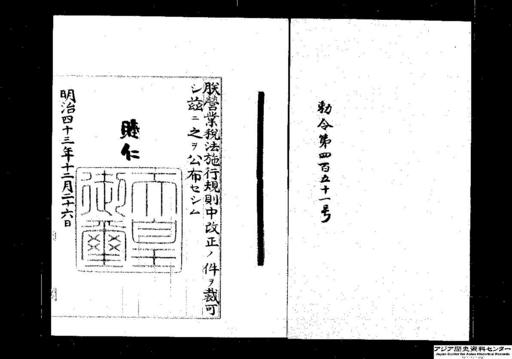 勅令第四百五十一号
朕営業税法施行規則中改正ノ件ヲ裁可
シ茲ニ之ヲ公布セシム
睦仁
天皇
御璽
明治四十三年十二月二十六日
アジア歴史資料センター
Japan Center for Asian Historical Records